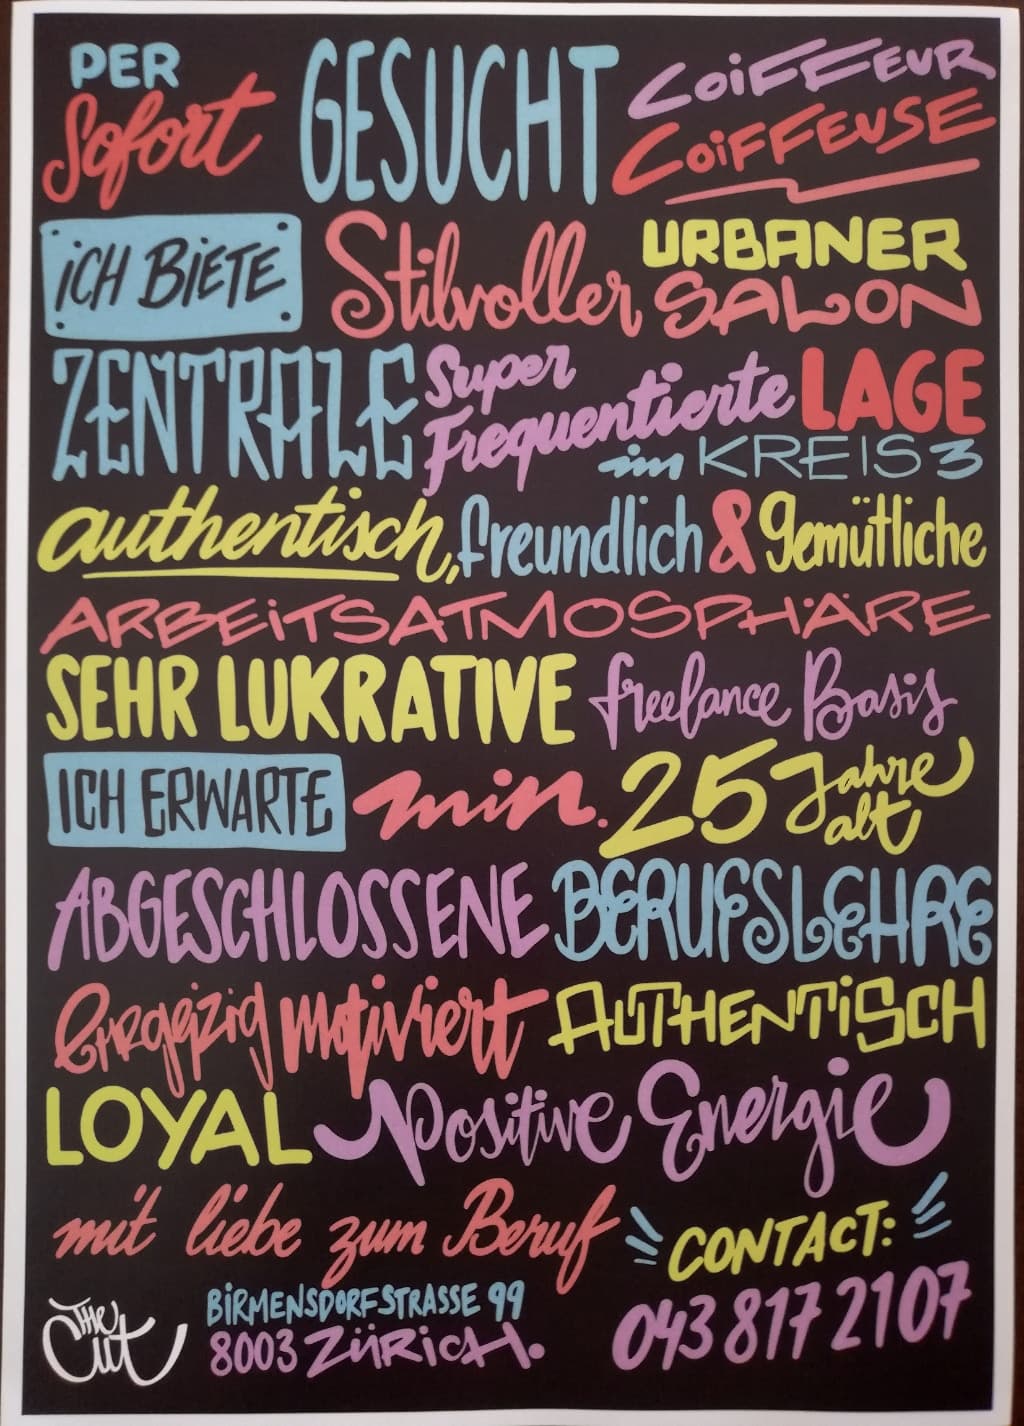 PER Sofort GESUCHT COiFFEUR
COiFFEUSE
iCH BiETE Stilvoller URBANER
SALON
ZENTRALE Super Frequentierte LAGE
im KREIS 3
authentisch, freundlich & gemütliche
ARBEiTSATMOSPHÄRE
SEHR LUKRATIVE freelance Basis
ICH ERWARTE min. 25 Jahre alt
ABGESCHLOSSENE BERUFSLEHRE
Ergeizig motiviert AUTHENTiSCH
LOYAL Positive Energie
mit liebe zum Beruf
CONTACT:
043 817 21 07
BiRMENSDORFSTRASSE 99
8003 ZÜRiCH.
THE Cut